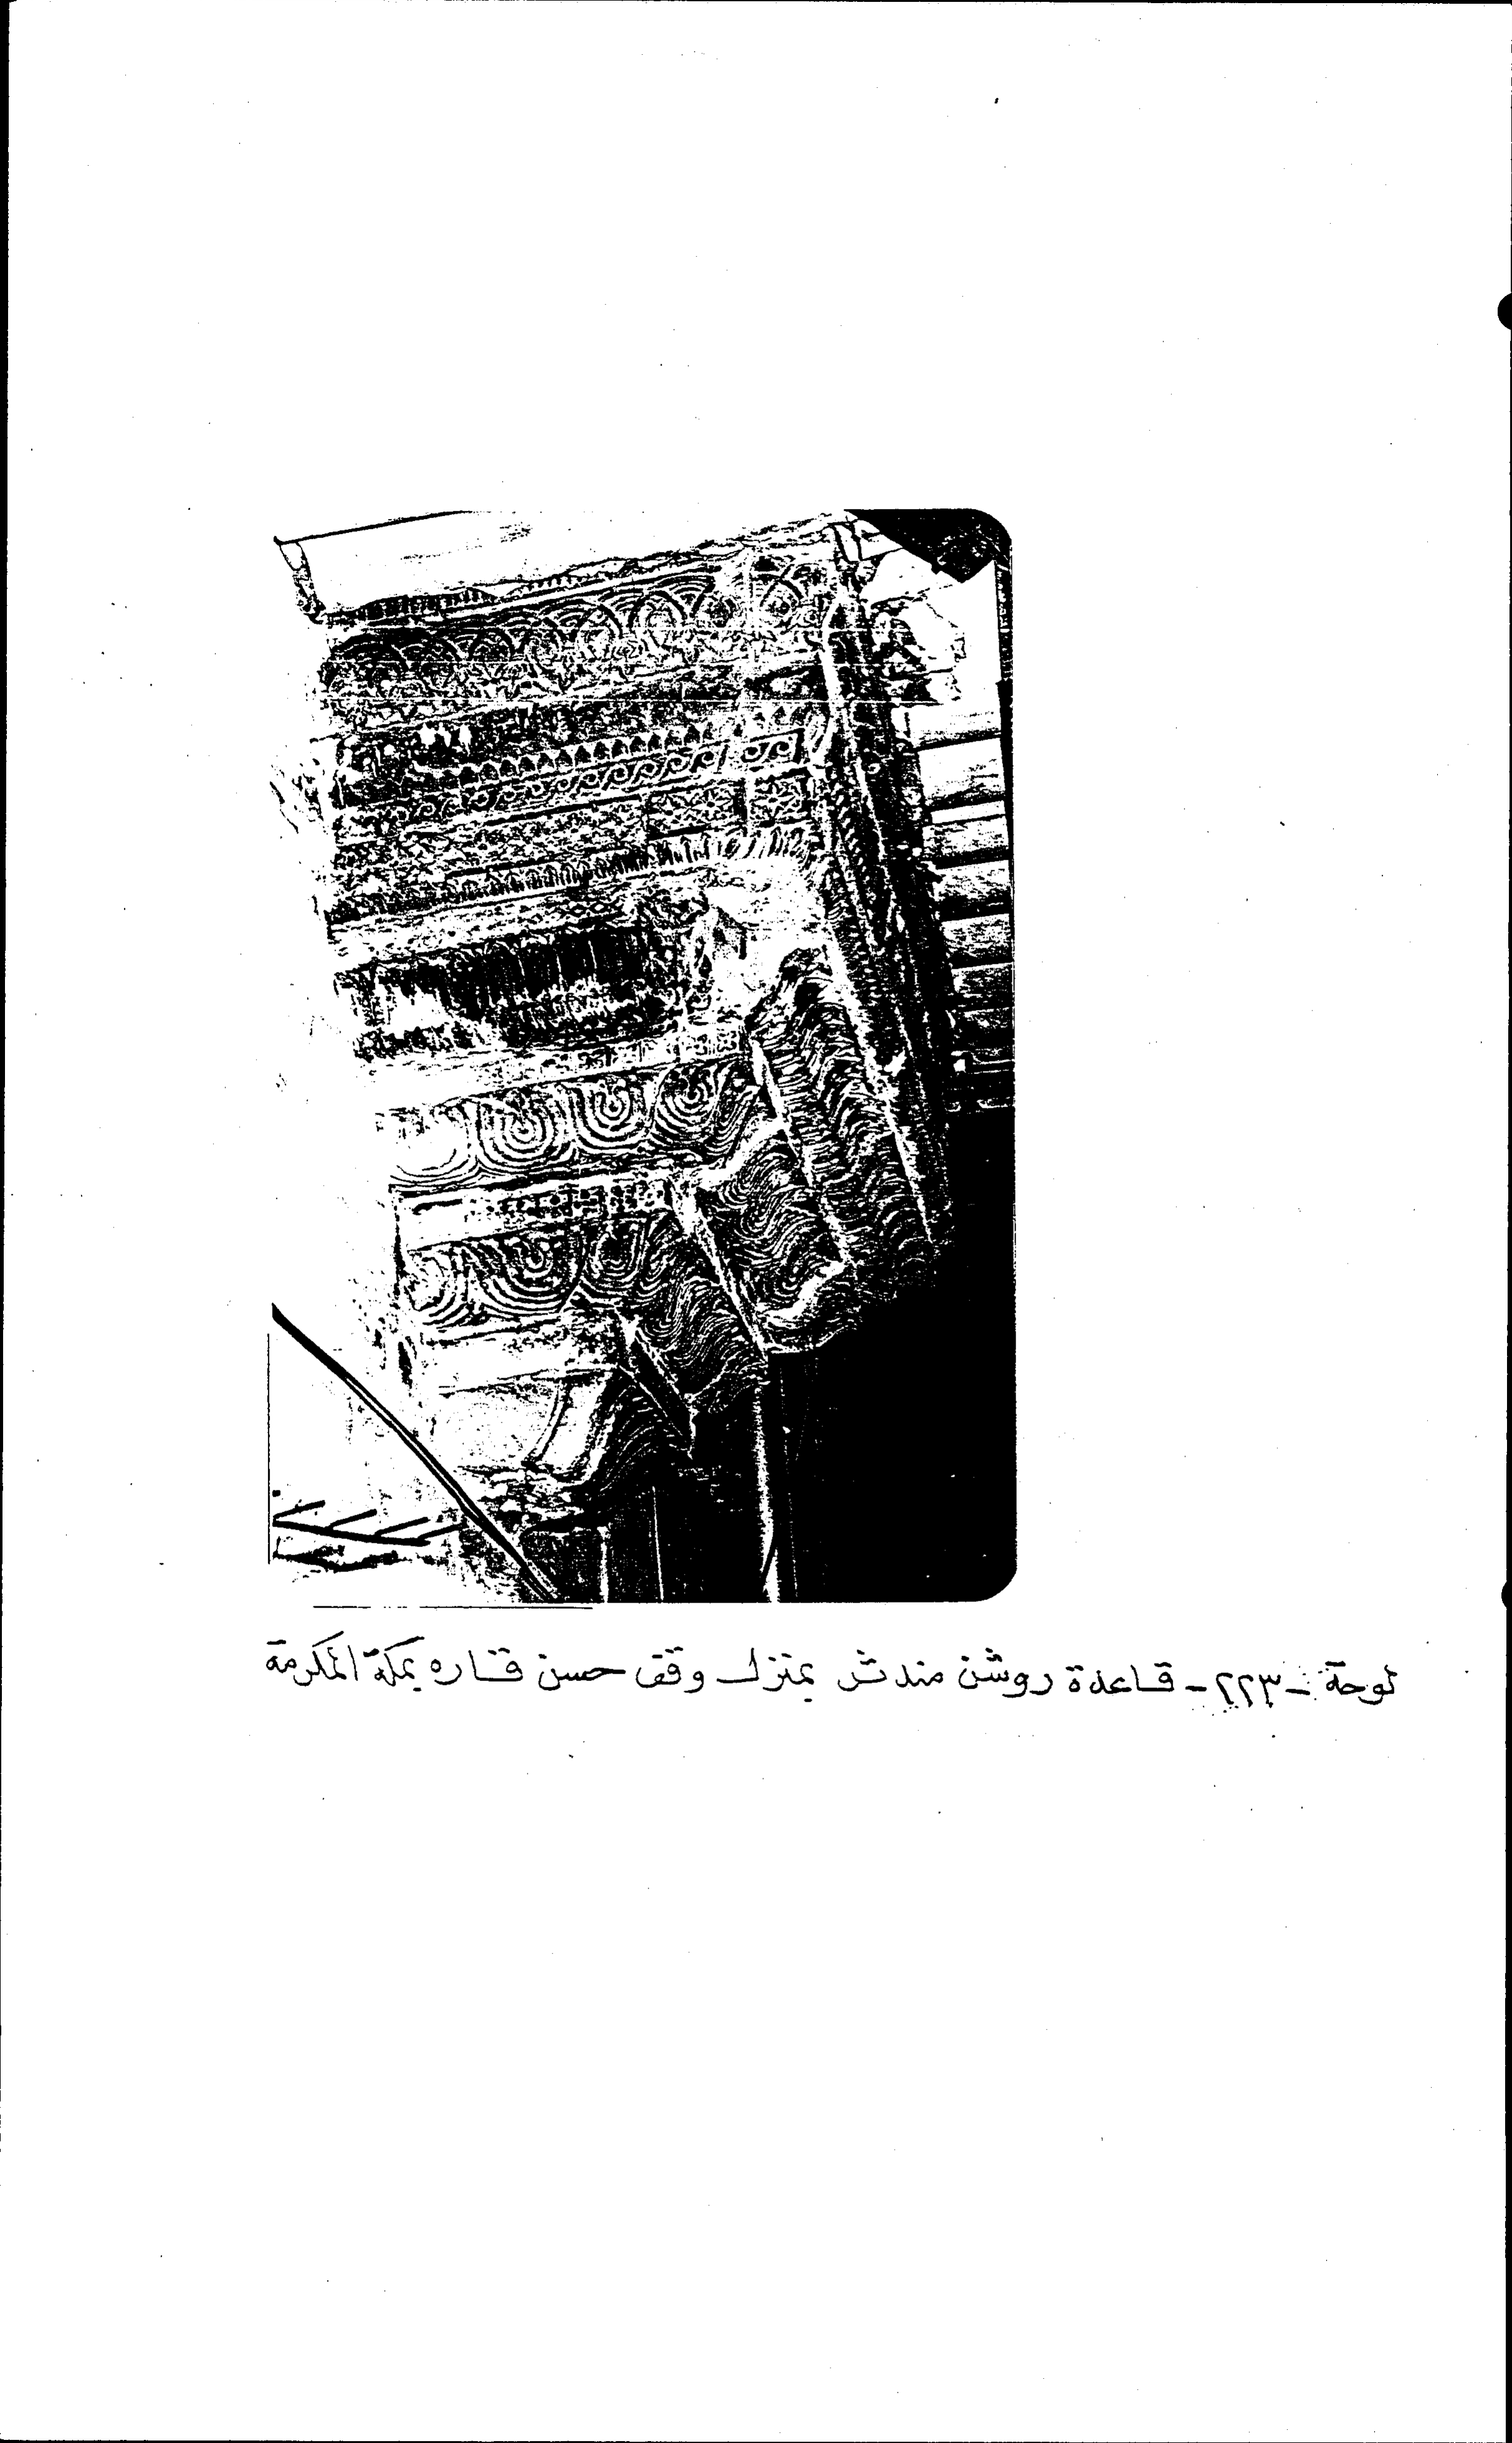 لوحة -٢٢٣- قاعدة روشن مندثر بمنزل وقف حسن قاره بمكة المكرمة